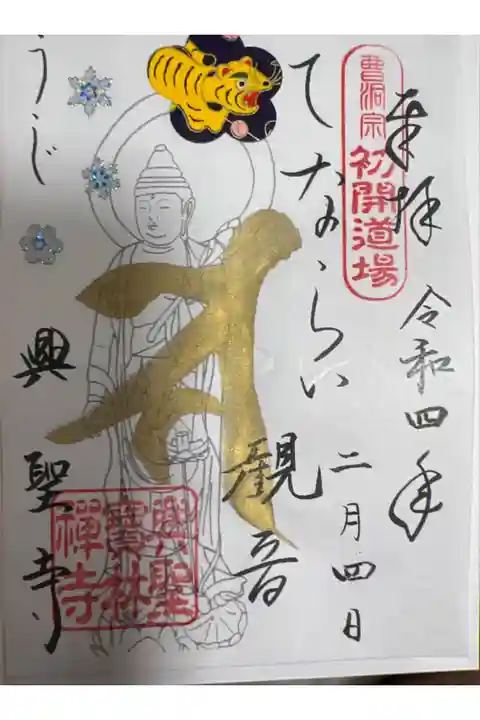 奉拝
令和四年
二月四日
曹洞宗
初開道場
てならい
観音
うじ
興聖寺
興聖
寳林
禅寺